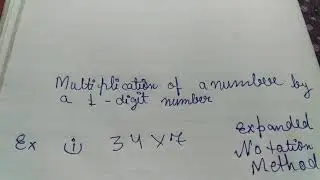 Multiplication of a number by
a 1-digit number
Ex i) 34x7
Expanded
Notation
Method